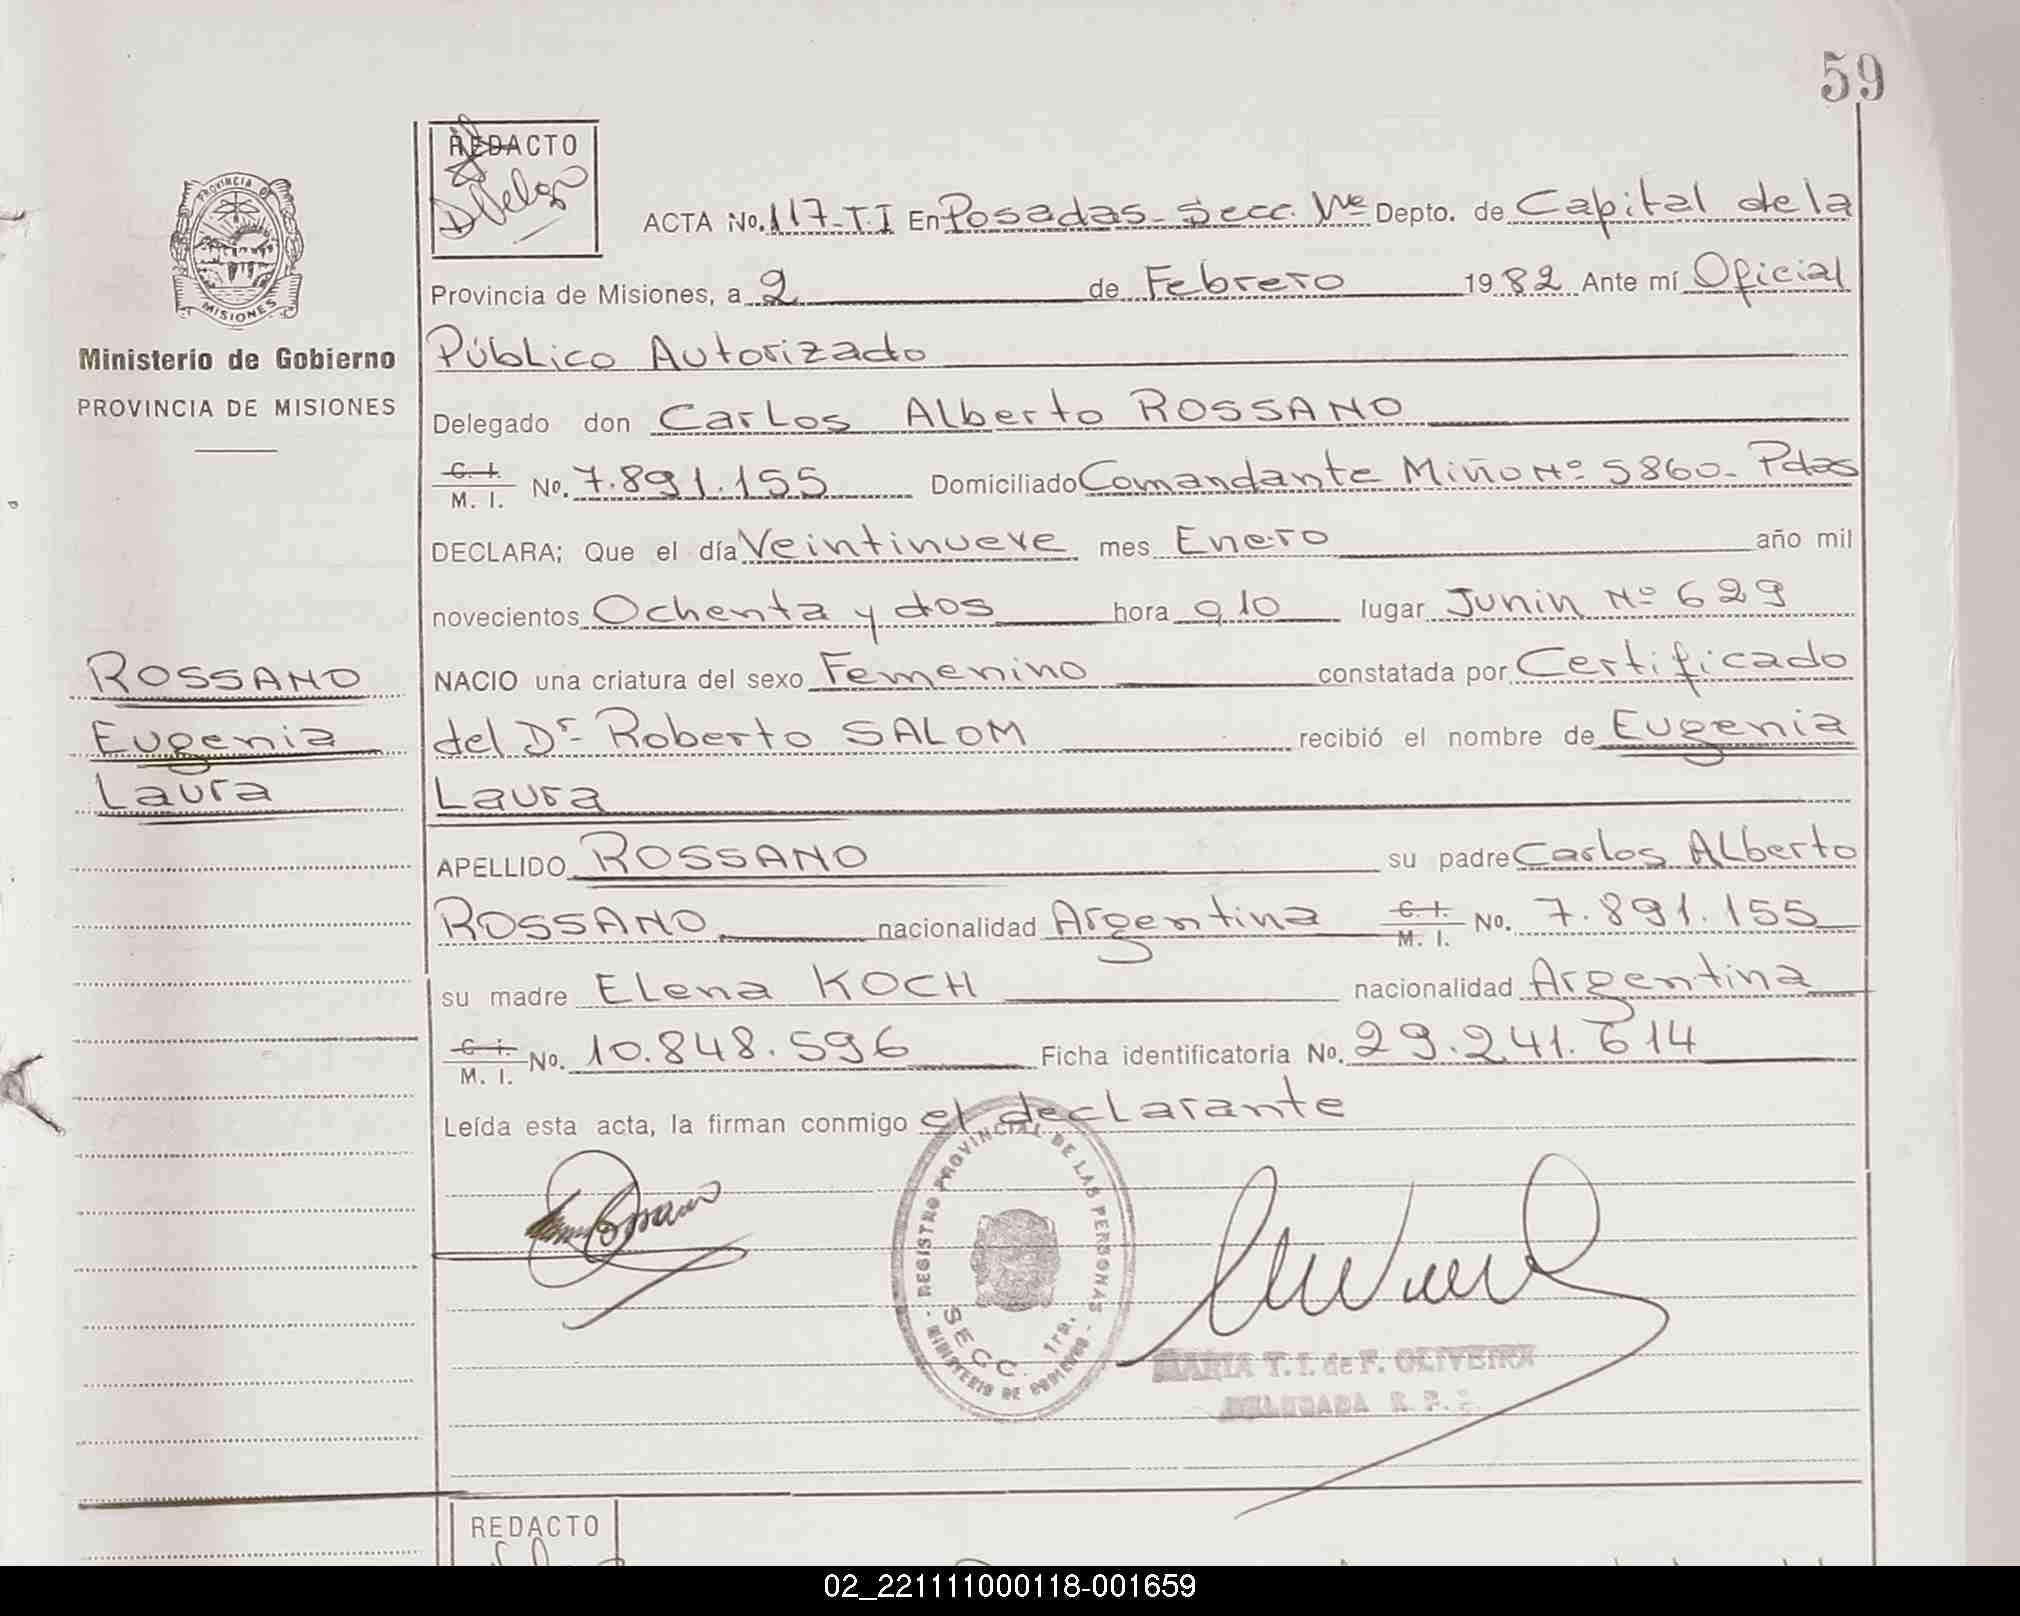 59
REDACTO
PROVINCIA DE
MISIONES
Ministerio de Gobierno
PROVINCIA DE MISIONES
ACTA No. 117-T.I En Posadas-Secc. 1ra Depto. de Capital de la
Provincia de Misiones, a 2 de Febrero 1982 Ante mí Oficial
Público Autorizado
Delegado don Carlos Alberto ROSSANO
C. I.
M. I. No. 7.891.155 Domiciliado Comandante Miño Nº 5860- Pdas
DECLARA; Que el día Veintinueve mes Enero año mil
novecientos Ochenta y dos hora 9,10 lugar Junin Nº 629
NACIO una criatura del sexo Femenino constatada por Certificado
del Dr Roberto SALOM recibió el nombre de Eugenia
Laura
ROSSANO
Eugenia
Laura
APELLIDO ROSSANO su padre Carlos Alberto
ROSSANO nacionalidad Argentina C. I.
M. I. No. 7.891.155
su madre Elena KOCH nacionalidad Argentina
C. I.
M. I. No. 10.848.596 Ficha identificatoria No. 29.241.614
Leída esta acta, la firman conmigo el declarante
REGISTRO PROVINCIAL DE LAS PERSONAS
SECC. 1ra.
MINISTERIO DE GOBIERNO
MARIA T. I. de F. OLIVEIRA
DELEGADA R. P.
REDACTO
02_221111000118-001659